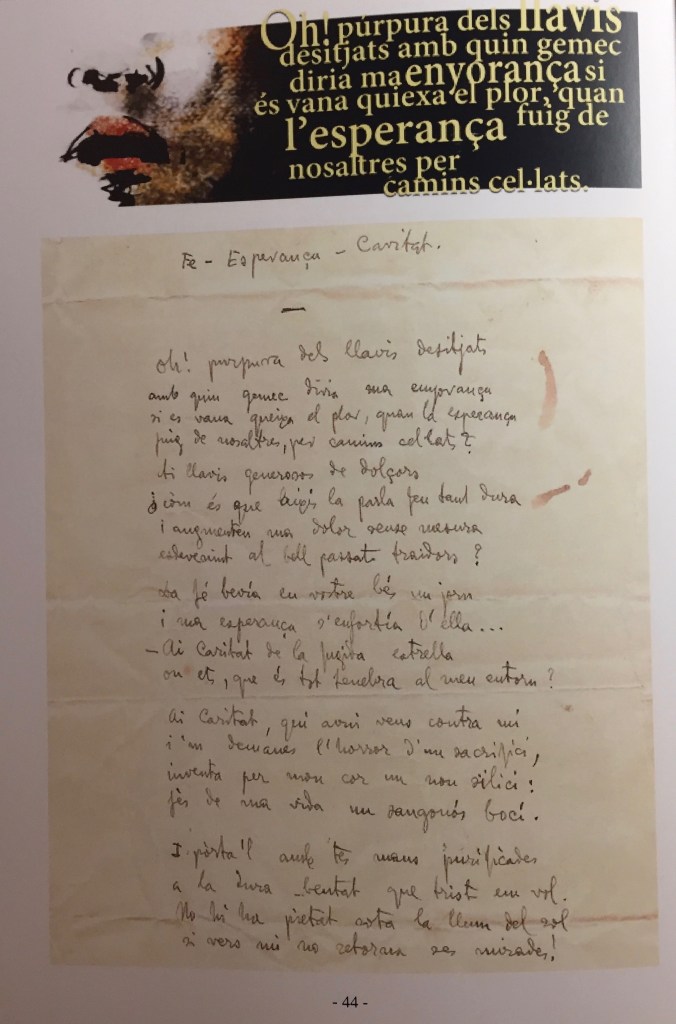 Oh! púrpura dels llavis
desitjats amb quin gemec
diria ma enyorança si
és vana quiexa el plor, quan
l'esperança fuig de
nosaltres per
camins cel·lats.
Fe - Esperança - Caritat.
Oh! purpura dels llavis desitjats
amb quin gemec diria ma enyorança
si es vana queixa el plor, quan la esperança
fuig de nosaltres, per camins cel·lats?
Ai llavis generosos de dolçors
¿còm és que aixís la parla feu tant dura
i augmenteu ma dolor sense mesura
esdevenint al bell passat traidors?
La fé bevía en vostre bés un jorn
i ma esperança s'enfortía d'ella...
- Ai Caritat de la fugida estrella
on ets, que és tot tenebra al meu entorn?
Ai Caritat, qui avui vens contra mi
i 'm demànes l'horror d'un sacrifici,
inventa per mon cor un nou silici:
fès de ma vida un sangonós bocí.
I pòrta'l amb tes mans purificades
a la dura beutat que trist em vol.
No hi ha pietat sota la llum del sol
si vers mi no retorna ses mirades!
- 44 -